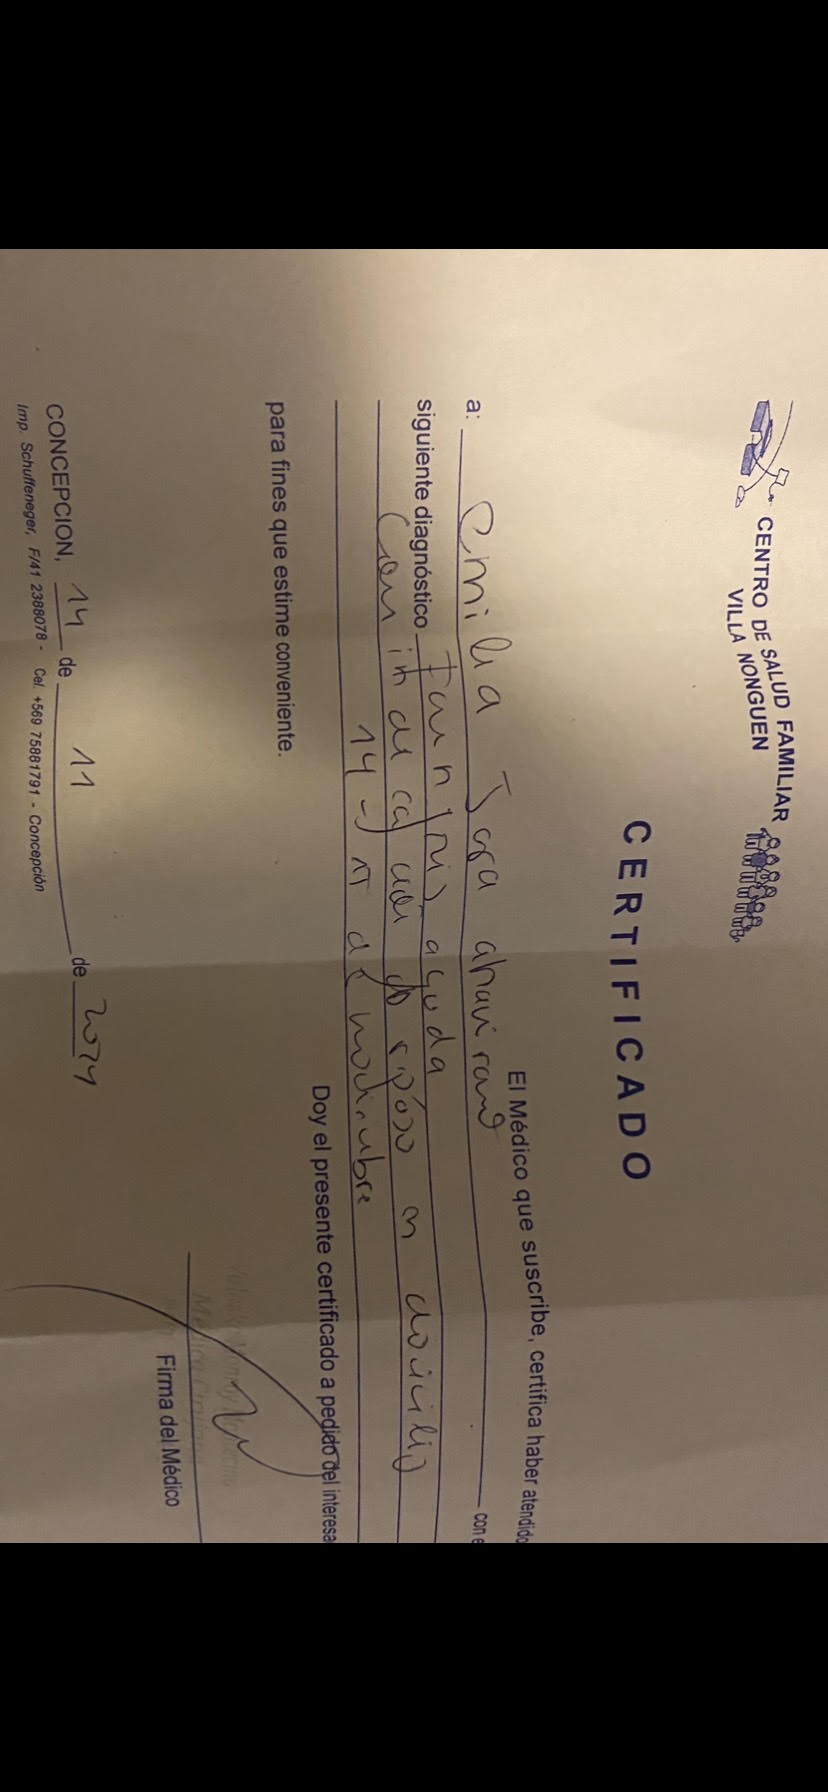 CENTRO DE SALUD FAMILIAR
VILLA NONGUEN
CERTIFICADO
El Médico que suscribe, certifica haber atendido
a: Emilia Jara con e
siguiente diagnóstico Faringitis aguda
Con indicación de reposo en domicilio
14 de noviembre
Doy el presente certificado a pedido del interesa
para fines que estime conveniente.
Firma del Médico
CONCEPCION, 14 de 11 de 2024
Imp. Schuffeneger, F/41 2388078 - Cel. +569 75881791 - Concepción